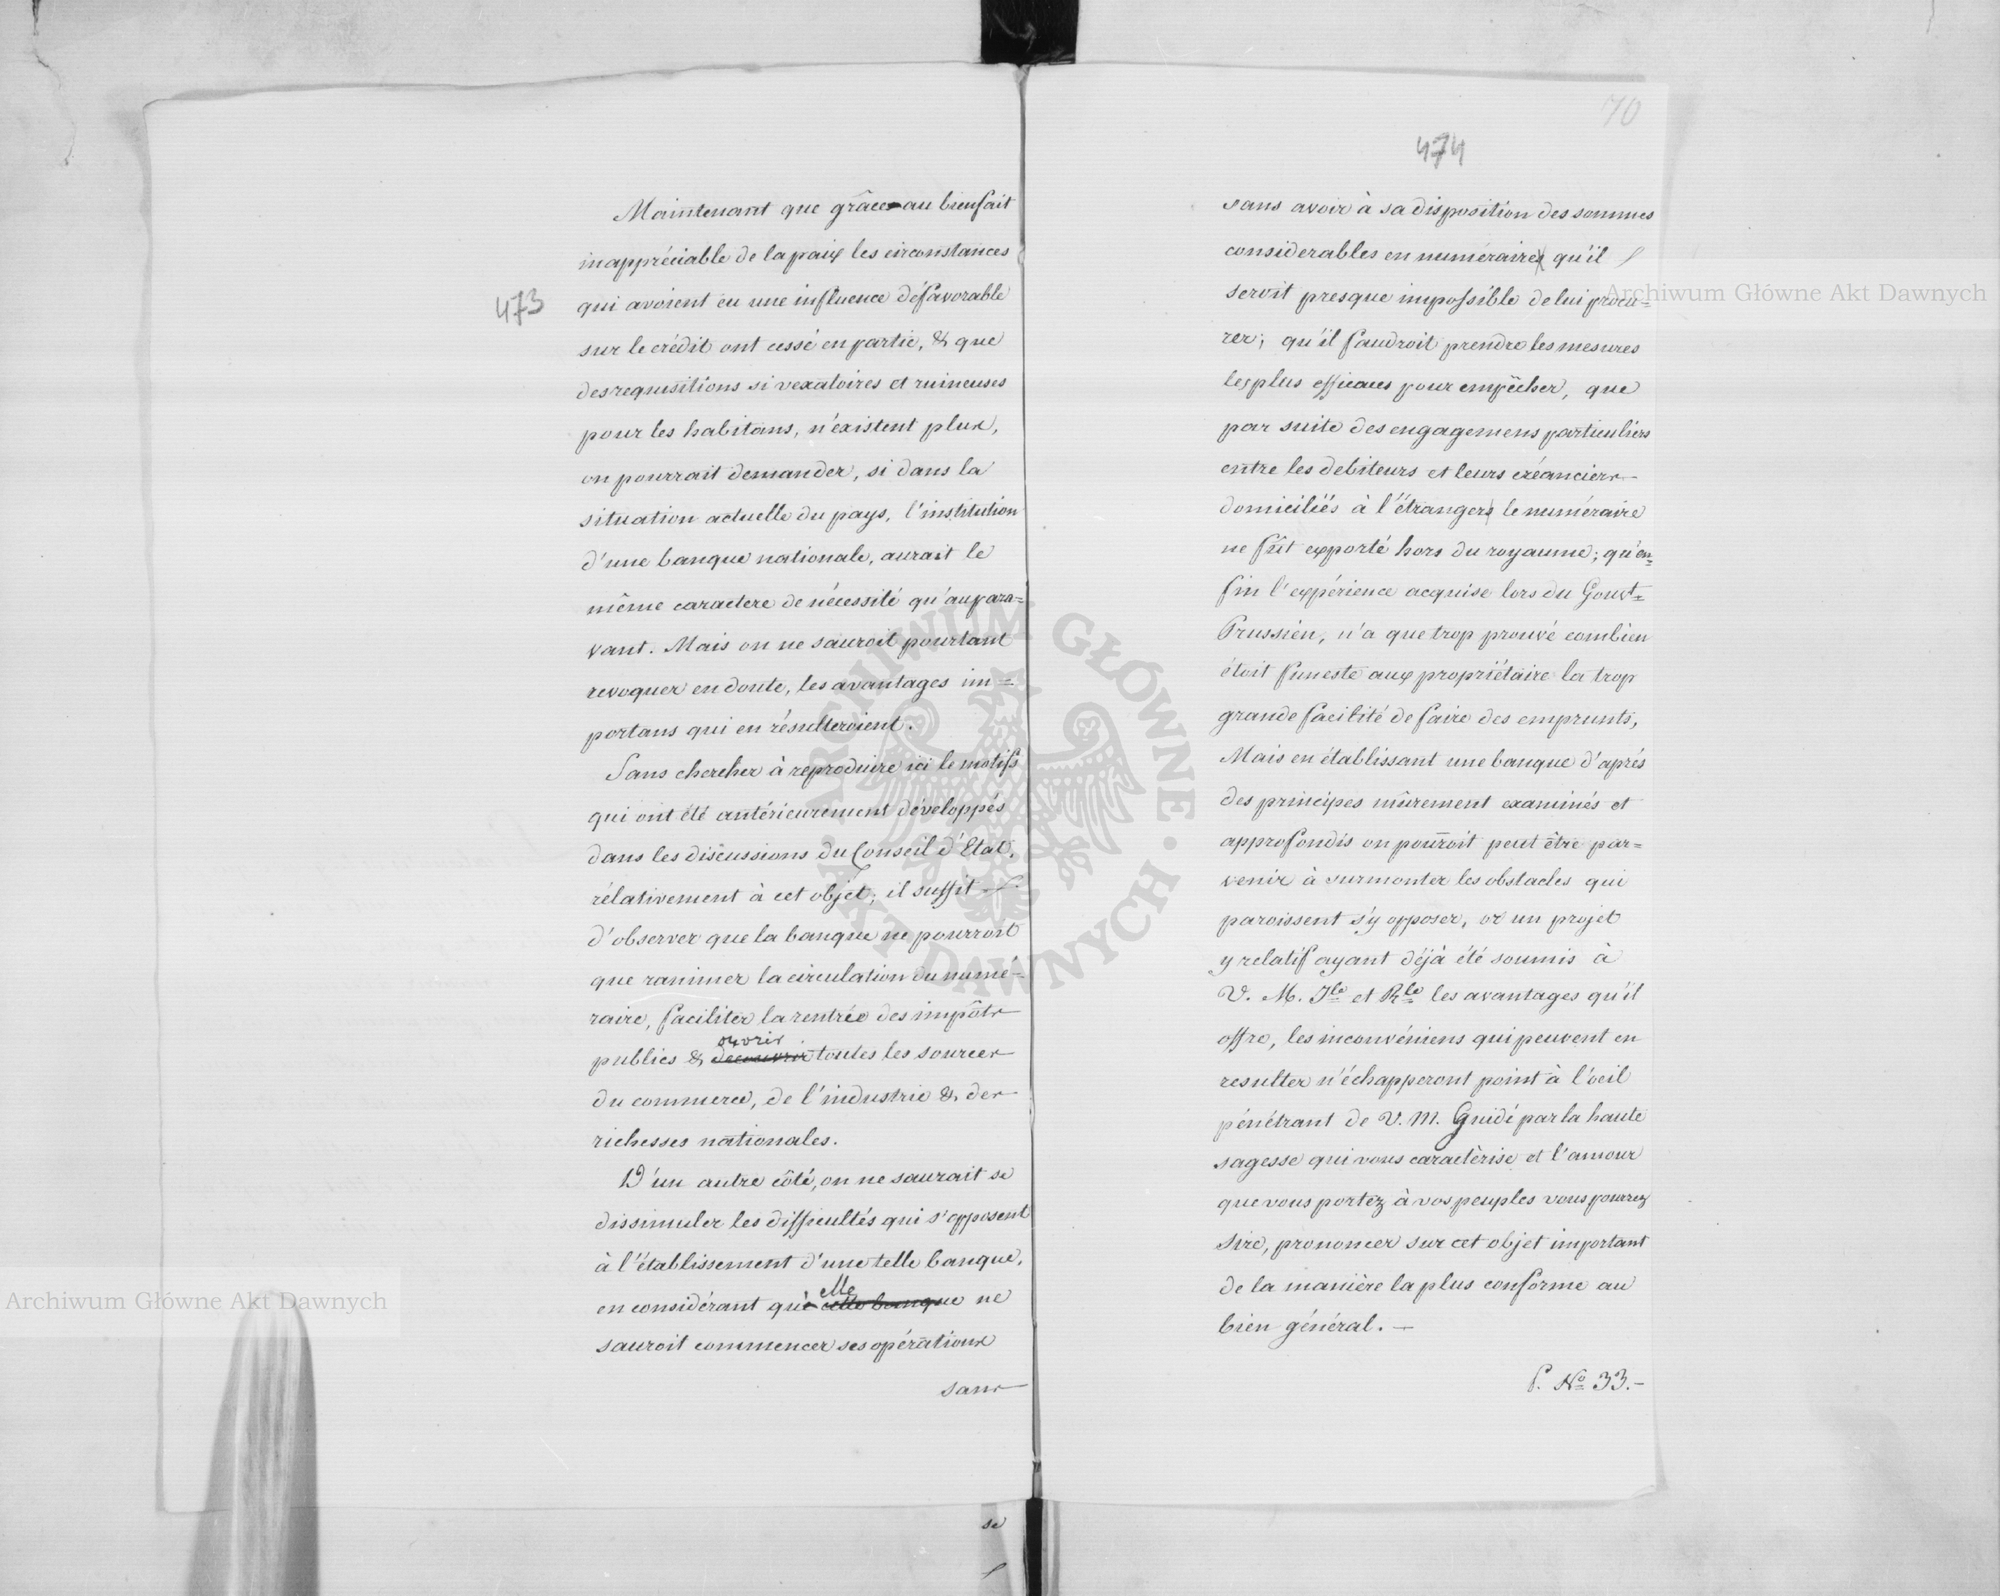 473
Maintenant que grâce au bienfait
inappréciable de la paix les circonstances
qui avoient eu une influence défavorable
sur le crédit ont cessé en partie, & que
des requisitions si vexatoires et ruineuses
pour les habitans, n'existent plus,
on pourrait demander, si dans la
situation actuelle du pays, l'institution
d'une banque nationale, aurait le
même caractere de nécessité qu'aupara=
vant. Mais on ne sauroit pourtant
revoquer en doute, les avantages im=
portans qui en résulteroient.
Sans chercher à reproduire ici le motifs
qui ont été antérieurement développés
dans les discussions du Conseil d'Etat,
rélativement à cet objet; il suffit
d'observer que la banque ne pourroit
que ranimer la circulation du numé=
raire, faciliter la rentrée des impôts
ouvrir
publics & decouvrir toutes les sources
du commerce, de l'industrie & des
richesses nationales.
D'un autre côté, on ne saurait se
dissimuler les difficultés qui s'opposent
à l'établissement d'une telle banque,
elle
en considérant que cette banque ne
sauroit commencer ses opérations
sans
70
474
sans avoir à sa disposition des sommes
considerables en numéraire qu'il
seroit presque impossible de lui procu=
rer; qu'il faudroit prendre les mesures
les plus efficaces pour empêcher, que
par suite des engagemens particuliers
entre les debiteurs et leurs créanciers
domiciliés à l'étranger le numéraire
ne fût exporté hors du royaume; qu'en=
fin l'expérience acquise lors du Gouvt=
Prussien, n'a que trop prouvé combien
étoit funeste aux propriétaire la trop
grande facilité de faire des emprunts,
Mais en établissant une banque d'après
des principes mûrement examinés et
approfondis on pourroit peut être par=
venir à surmonter les obstacles qui
paroissent s'y opposer, or un projet
y relatif ayant déjà été soumis à
V. M. Jle et Rle les avantages qu'il
offre, les inconvéniens qui peuvent en
resulter n'échapperont point à l'oeil
pénétrant de V. M. Guidé par la haute
sagesse qui vous caractèrise et l'amour
que vous portez à vos peuples vous pourrez
Sire, prononcer sur cet objet important
de la manière la plus conforme au
bien général. —
P. No 33.—
se
Archiwum Główne Akt Dawnych
Archiwum Główne Akt Dawnych
ARCHIWUM GŁÓWNE · AKT DAWNYCH ·